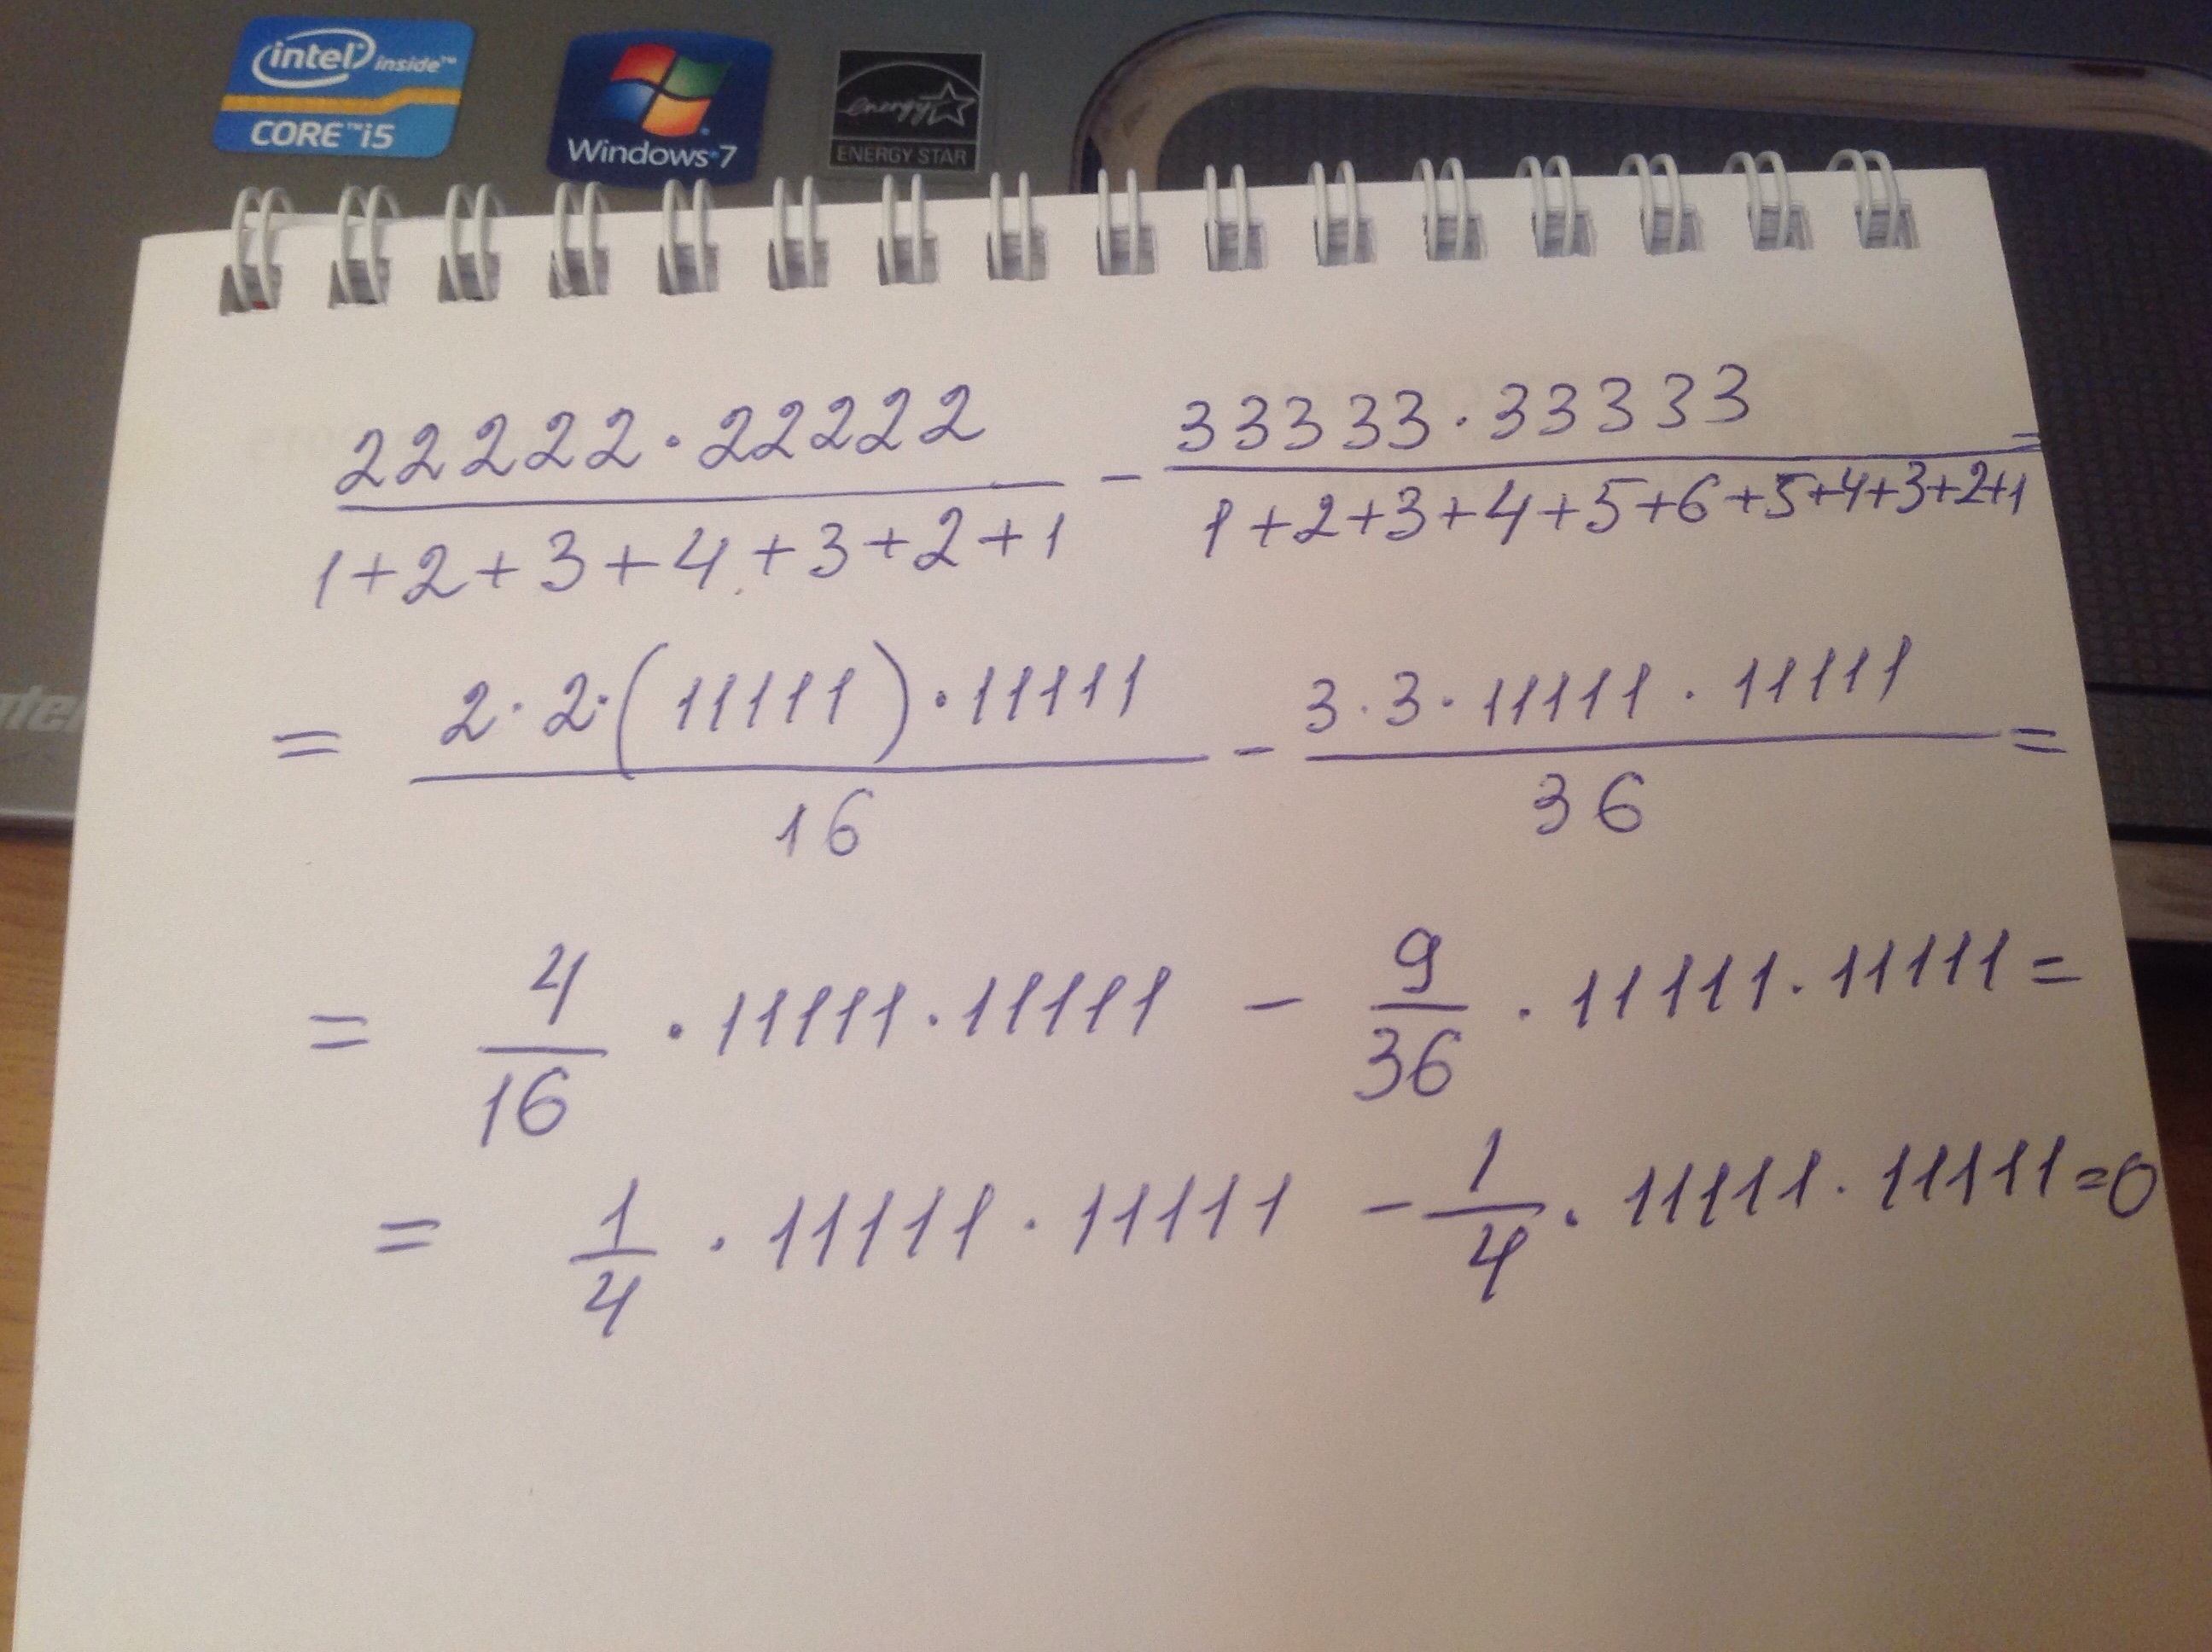 intel inside™
CORE™i5
Windows 7
energy
ENERGY STAR
22222·22222 / 1+2+3+4+3+2+1 - 33333·33333 / 1+2+3+4+5+6+5+4+3+2+1 =
= 2·2·(11111)·11111 / 16 - 3·3·11111·11111 / 36 =
= 4/16 ·11111·11111 - 9/36 ·11111·11111 =
= 1/4 ·11111·11111 - 1/4 ·11111·11111 = 0